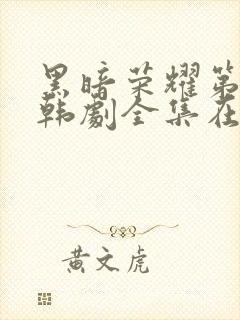 黑暗荣耀第
韩剧全集在
黄文虎